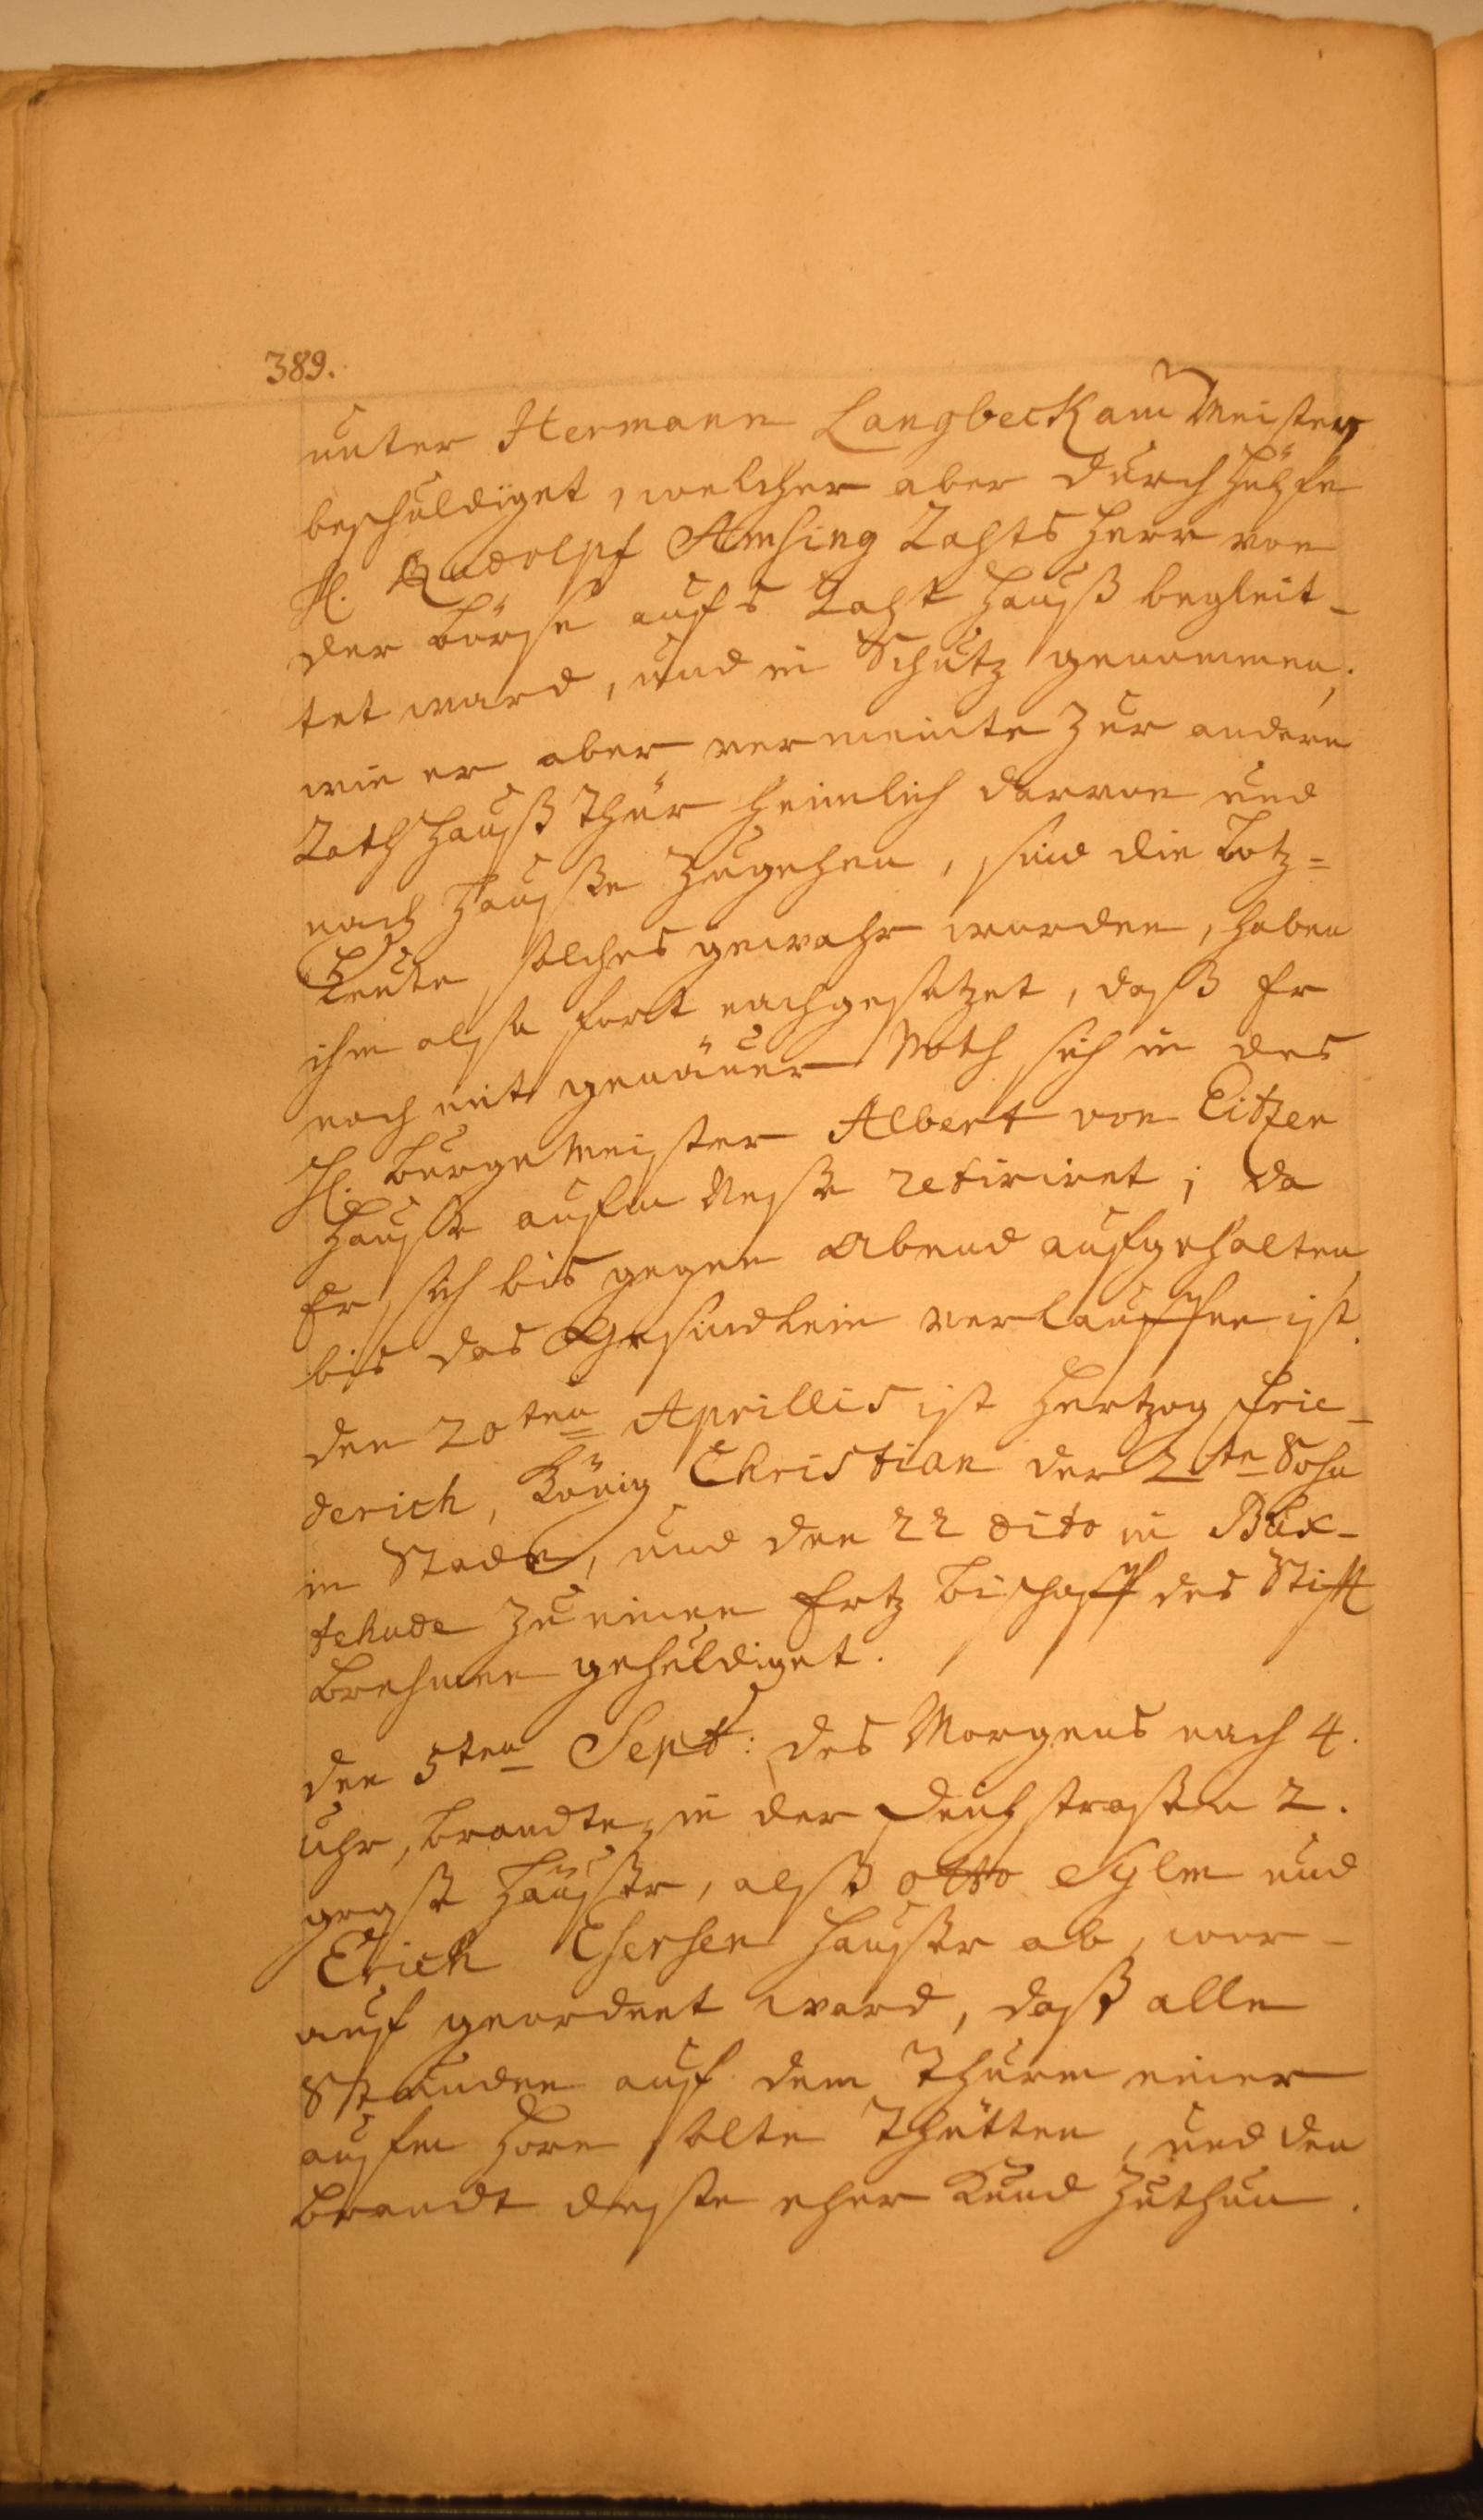 389.
unter Hermann Langbeck am Meisten
beschuldiget, welcher aber durch Hülfe
H. Rudolpf Amsing Rahts Herr von
der Börse aufs Raht Hauß begleit-
tet ward, und in Schutz genommen.
wie er aber vermeinte zur andern
Rath Hauß Thür heimlich darvon und
nach Hauße zugehen, sind die Botz=
Leute solches gewahr worden, haben
ihm alsu fort nachgesetzet, daß Er
noch mit genäuer Noth sich in des
H. Burge Meister Albert von Eitzen
Hauße aufm Neße retiriret; da
Er sich bis gegen Abend aufgehalten
bis das Gesindlein verlauffen ist.
den 20ten Aprillis ist Hertzog Frie-
derich, König Christian der 2te Sohn
in Stade, und den 22 dito in Bux-
tehude zu einen Ertz Bischoff des Stifft
Brehmen gehuldiget.
den 5ten Sept: des Morgens nach 4.
Uhr, brandte in der Deichstraßen 2.
große Häußer, alß Otto Sylm und
Erich Ehersen Haußer ab, wor-
auf geordnet ward, daß alle
Stunden auf dem Thurm einer
aufm Horn solte Thütten, und den
Brandt deste eher Kund zuthun.